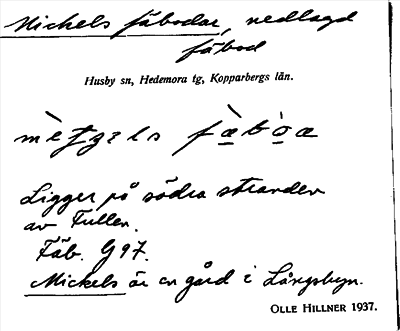 Mickels fäbodar, nedlagd
fäbod
Husby sn, Hedemora tg, Kopparbergs län.
Ligger på södra stranden
av Fullen.
Fäb. G 97.
Mickels är en gård i Långsbyn.
OLLE HILLNER 1937.